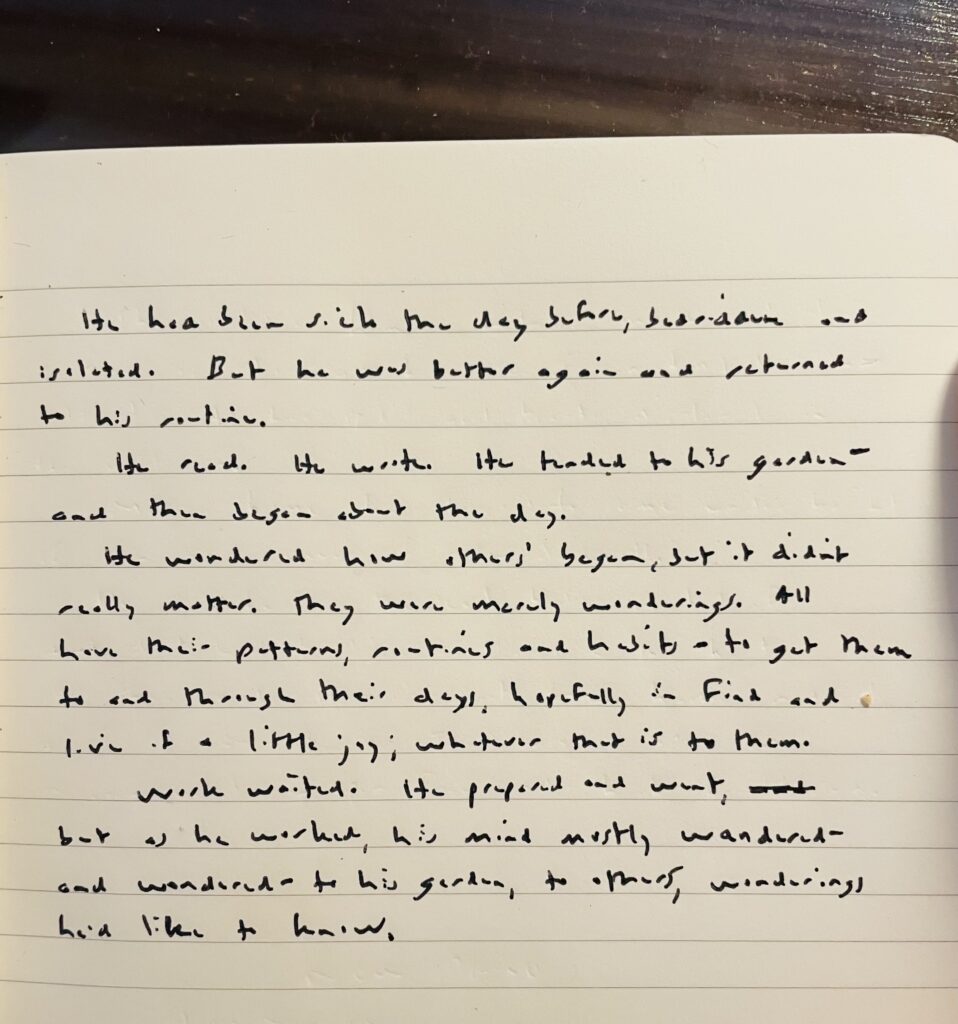 He had been sick the day before, bedridden and
isolated. But he was better again and returned
to his routine.
He read. He wrote. He tended to his garden-
and then began about the day.
He wondered how others' began, but it didn't
really matter. They were merely wonderings. All
have their patterns, routines and habits - to get them
to and through their days, hopefully to find and
live if a little joy; whatever that is to them.
Work waited. He prepared and went,
but as he worked, his mind mostly wandered-
and wondered- to his garden, to others, wonderings
he'd like to know.